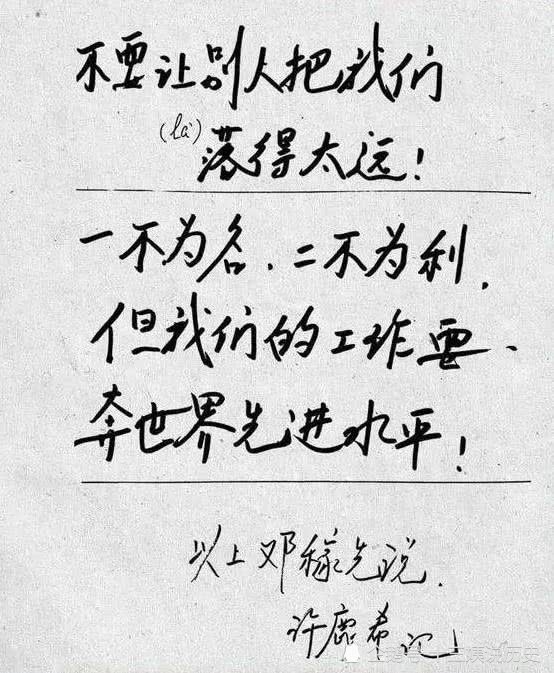 不要让别人把我们
(là)落得太远!
一不为名、二不为利,
但我们的工作要、
奔世界先进水平!
以上邓稼先说.
许鹿希记